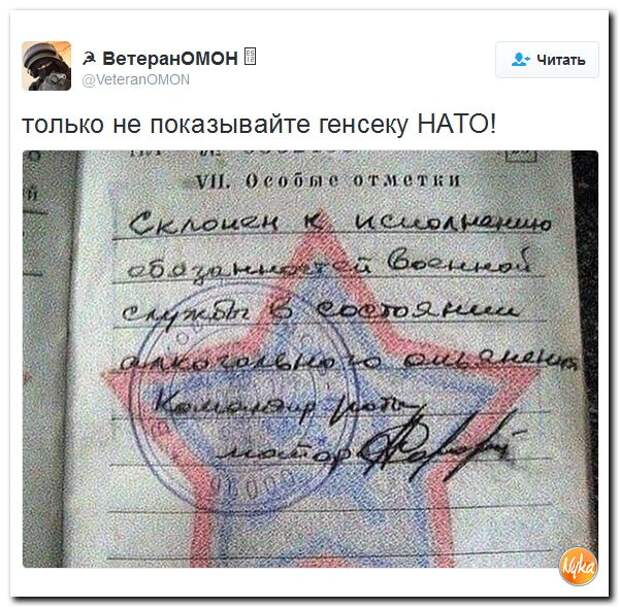 ☭ ВетеранОМОН
@VeteranOMON
Читать
только не показывайте генсеку НАТО!
VII. Особые отметки
Склонен к исполнению
обязанностей военной
службы в состоянии
алкогольного опьянения
Командир роты
майор
Nyka